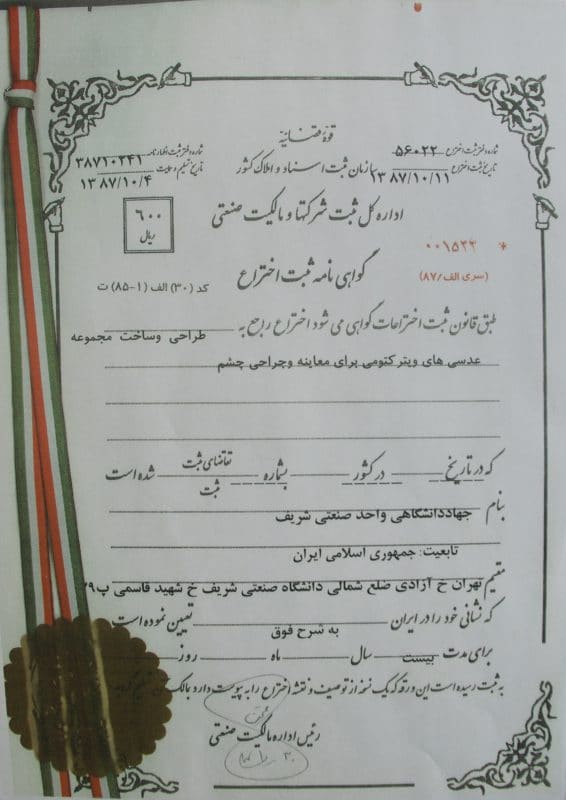 قوهٔ قضائیه
شماره دفتر ثبت اختراع ۵۶۰۲۲
شماره دفتر ثبت اظهارنامه ۳۸۷۱۰۲۴۱
سازمان ثبت اسناد و املاک کشور
تاریخ ثبت اختراع ۱۳۸۷/۱۰/۱۱
تاریخ تسلیم ۱۳۸۷/۱۰/۴
اداره کل ثبت شرکتها و مالکیت صنعتی
۶۰۰
ریال
* ۰۰۱۵۲۲
(سری الف/۸۷)
گواهی نامه ثبت اختراع
کد (۳۰) الف (۱-۸۵) ت
طبق قانون ثبت اختراعات گواهی می شود اختراع راجع به طراحی وساخت مجموعه
عدسی های ویترکتومی برای معاینه وجراحی چشم
که در تاریخ در کشور بشماره تقاضای ثبت شده است
ثبت
بنام جهاددانشگاهی واحد صنعتی شریف
تابعیت: جمهوری اسلامی ایران
مقیم تهران خ آزادی ضلع شمالی دانشگاه صنعتی شریف خ شهید قاسمی پ۲۹
که نشانی خود را در ایران به شرح فوق تعیین نموده است
برای مدت بیست سال ماه روز
به ثبت رسیده است این ورقه که یک نسخه از توصیف و نقشه اختراع را به پیوست دارد بمالک آن تسلیم
رئیس اداره مالکیت صنعتی